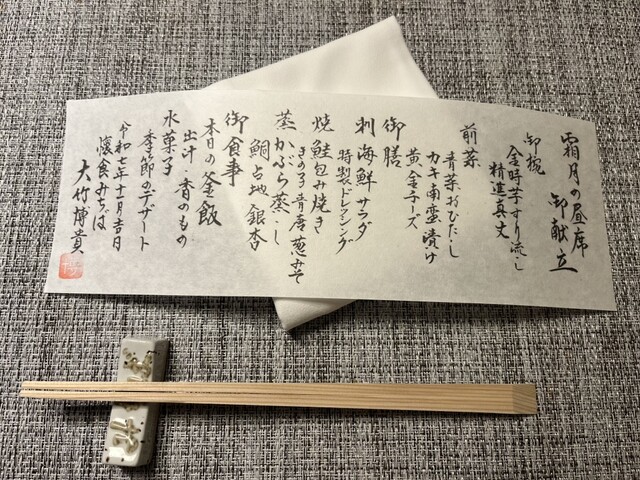 霜月の昼席
御献立
御椀
金時芋すり流し
精進真丈
前菜
青菜おひたし
カキ南蛮漬け
黄金チーズ
御膳
刺 海鮮サラダ
特製ドレッシング
焼 鮭包み焼き
きのこ 青唐葱みそ
蒸 かぶら蒸し
鯛 占地 銀杏
御食事
本日の釜飯
出汁・香のもの
水菓子
季節のデザート
令和七年十一月吉日
懐食みちば
大竹博貴